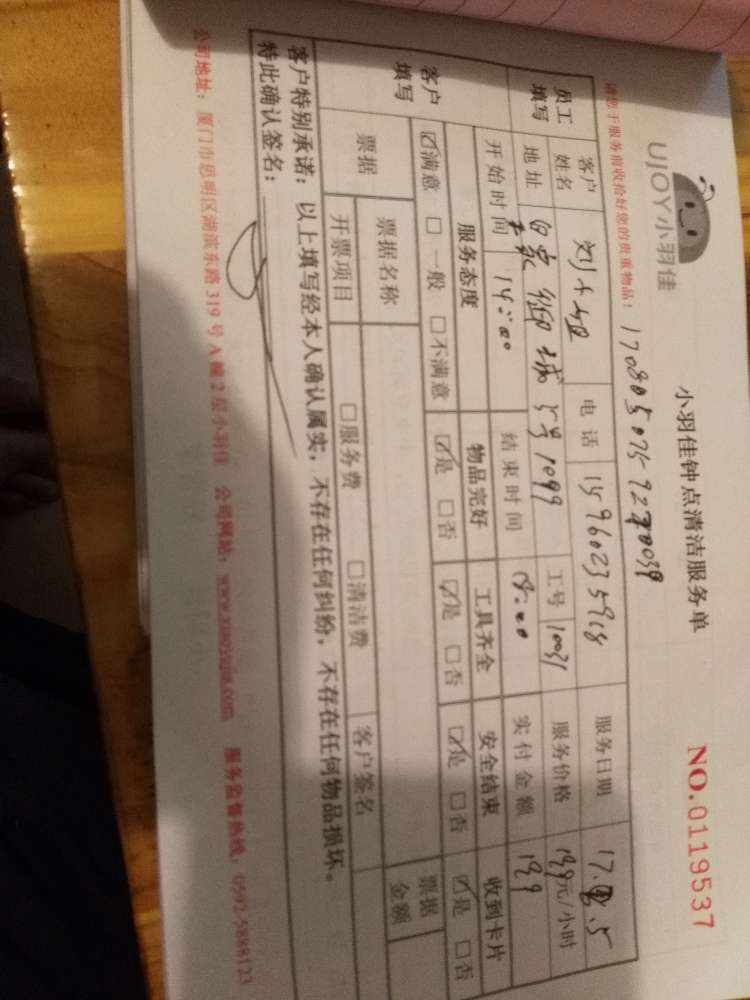 UJOY小羽佳
小羽佳钟点清洁服务单
NO.0119537
请您于服务前收拾好您的贵重物品!
员工填写 客户姓名 刘小姐 电话 服务日期
地址 工号 10031 服务价格 元/小时
开始时间 14:00 结束时间 实付金额
客户填写 服务态度 物品完好 工具齐全 安全结束 收到卡片
☑满意 □一般 □不满意 ☑是 □否 ☑是 □否 ☑是 □否 ☑是 □否
票据 票据名称 客户签名 票据金额
开票项目 □服务费 □清洁费
客户特别承诺：以上填写经本人确认属实，不存在任何纠纷，不存在任何物品损坏。
特此确认签名：
公司地址：厦门市思明区湖滨东路319号A幢2层小羽佳 公司网站：www.xiaoyujia.com 服务监督热线：0592-5888123